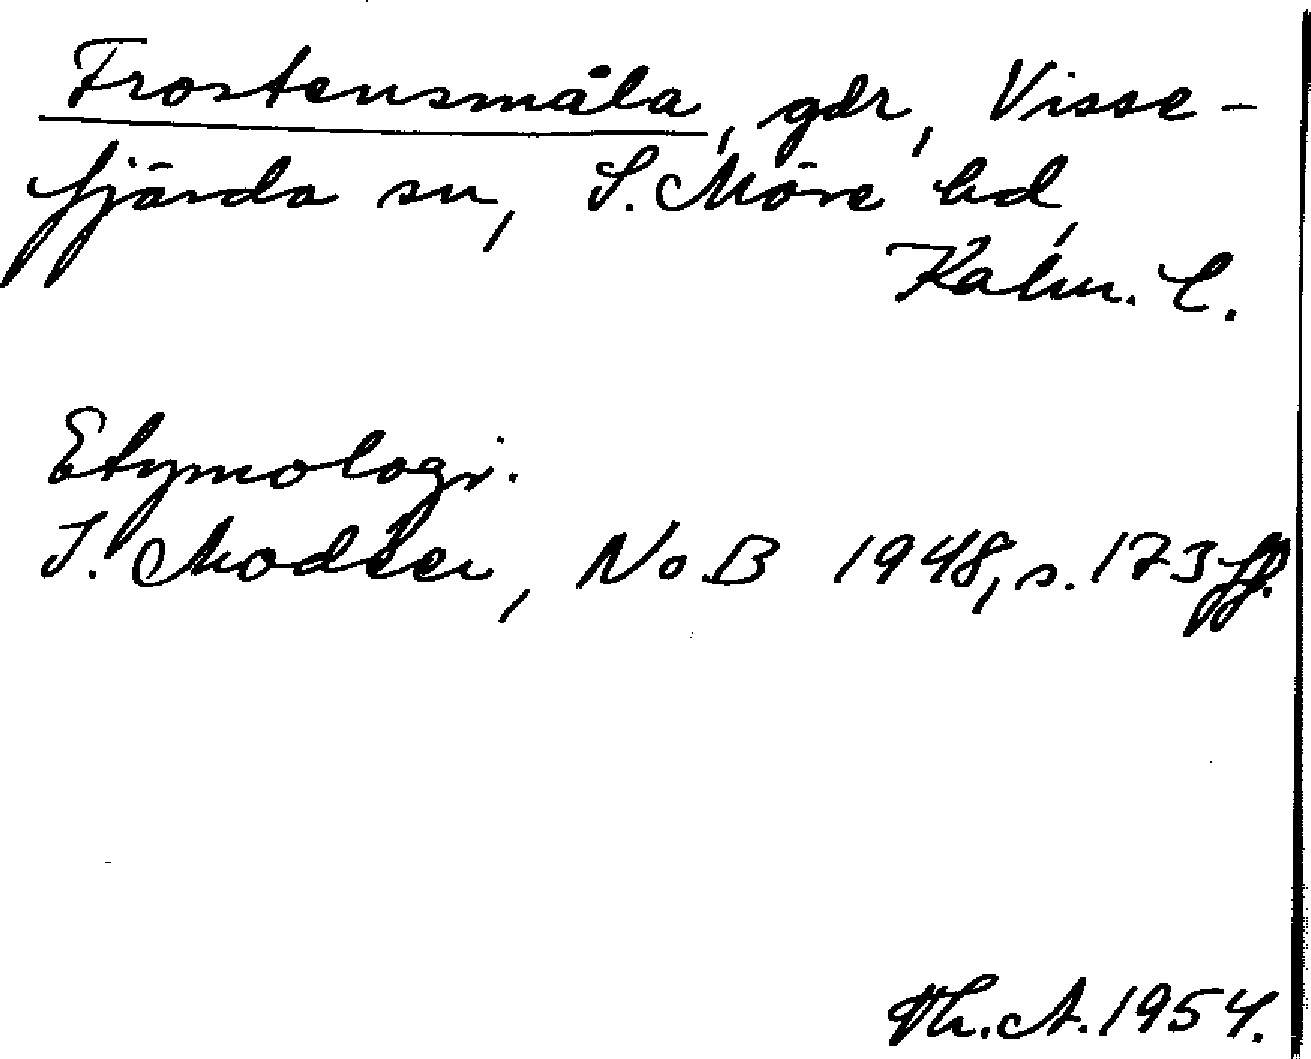 Frostensmåla, gdr, Visse-
fjärda sn, S. Möre hd,
Kalm. l.
Etymologi.
I. Modéer, NoB 1948, s. 173 ff.
Th. A. 1954.